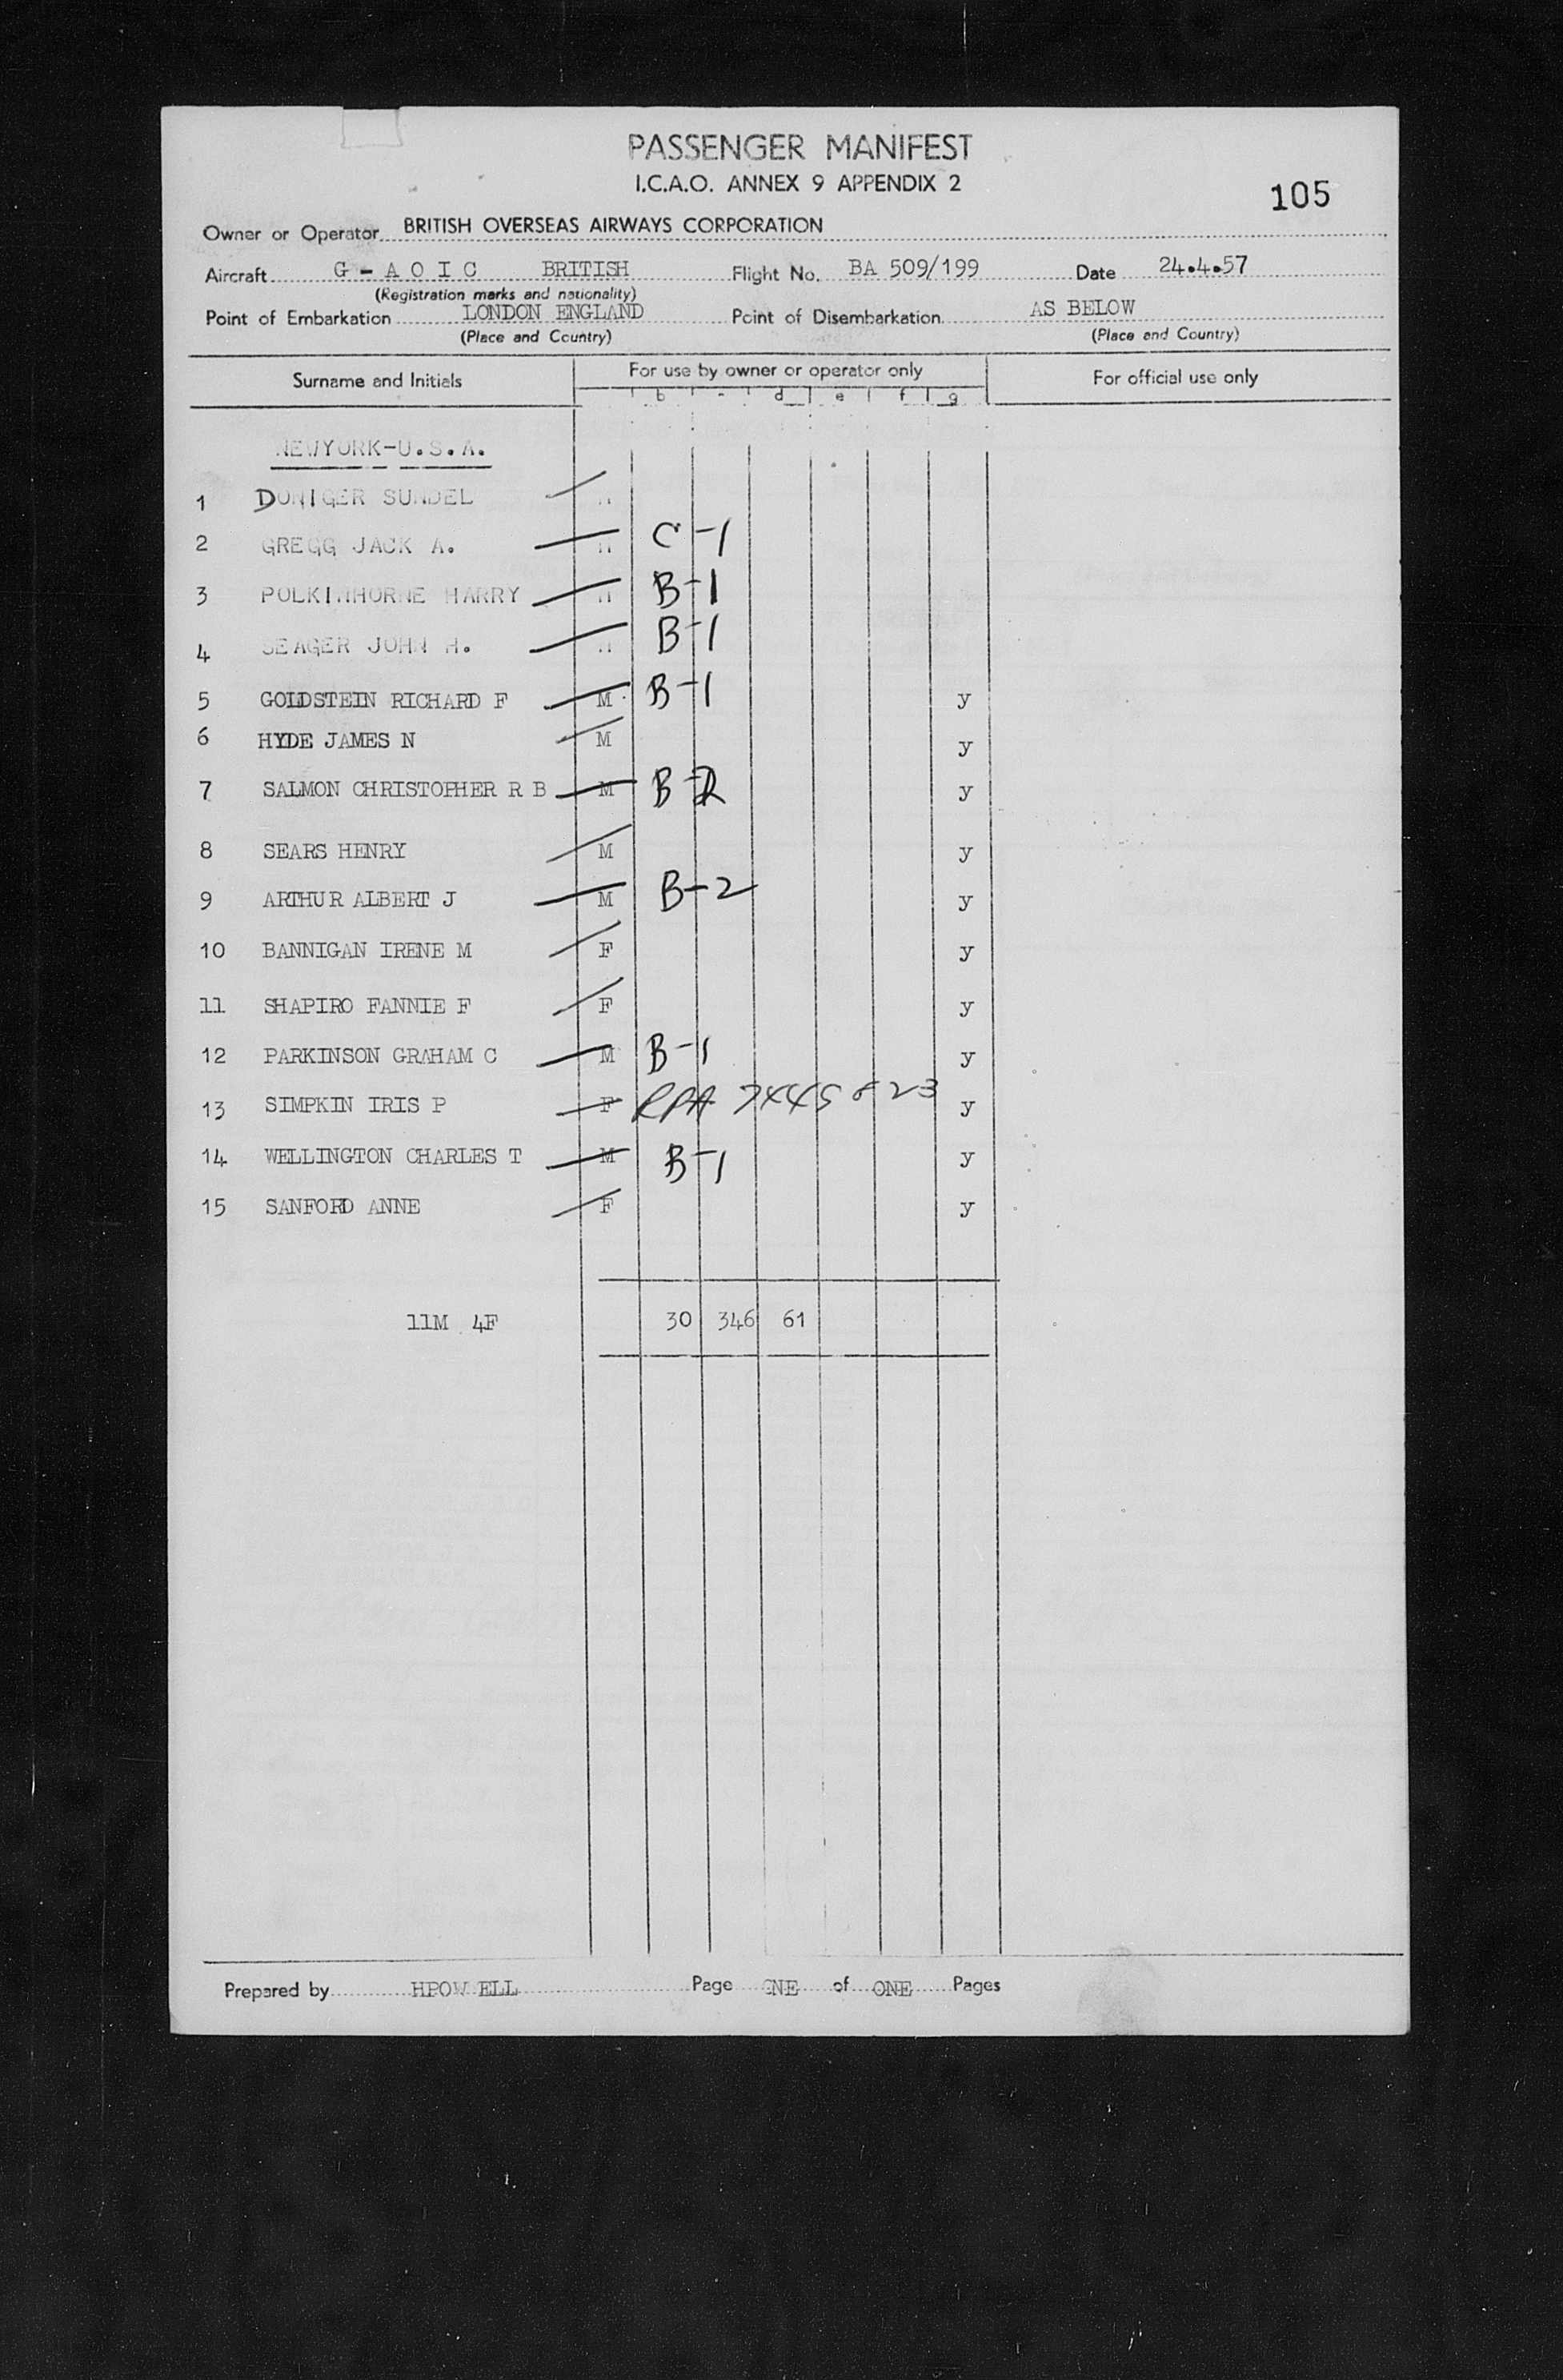 PASSENGER MANIFEST
I.C.A.O. ANNEX 9 APPENDIX 2
105
Owner or Operator BRITISH OVERSEAS AIRWAYS CORPORATION
Aircraft G - A O I C BRITISH Flight No. BA 509/199 Date 24.4.57
(Registration marks and nationality)
Point of Embarkation LONDON ENGLAND Point of Disembarkation AS BELOW
(Place and Country) (Place and Country)
Surname and Initials For use by owner or operator only For official use only
b d e f g
NEWYORK-U.S.A.
1 DONIGER SUNDEL
2 GREGG JACK A. C-1
3 POLKINHORNE HARRY B-1
4 SEAGER JOHN H. B-1
5 GOLDSTEIN RICHARD F M B-1 y
6 HYDE JAMES N M y
7 SALMON CHRISTOPHER R B M B-2 y
8 SEARS HENRY M y
9 ARTHUR ALBERT J M B-2 y
10 BANNIGAN IRENE M F y
11 SHAPIRO FANNIE F F y
12 PARKINSON GRAHAM C M B-1 y
13 SIMPKIN IRIS P F y
14 WELLINGTON CHARLES T M B-1 y
15 SANFORD ANNE F y
11M 4F 30 346 61
Prepared by HPOWELL Page ONE of ONE Pages